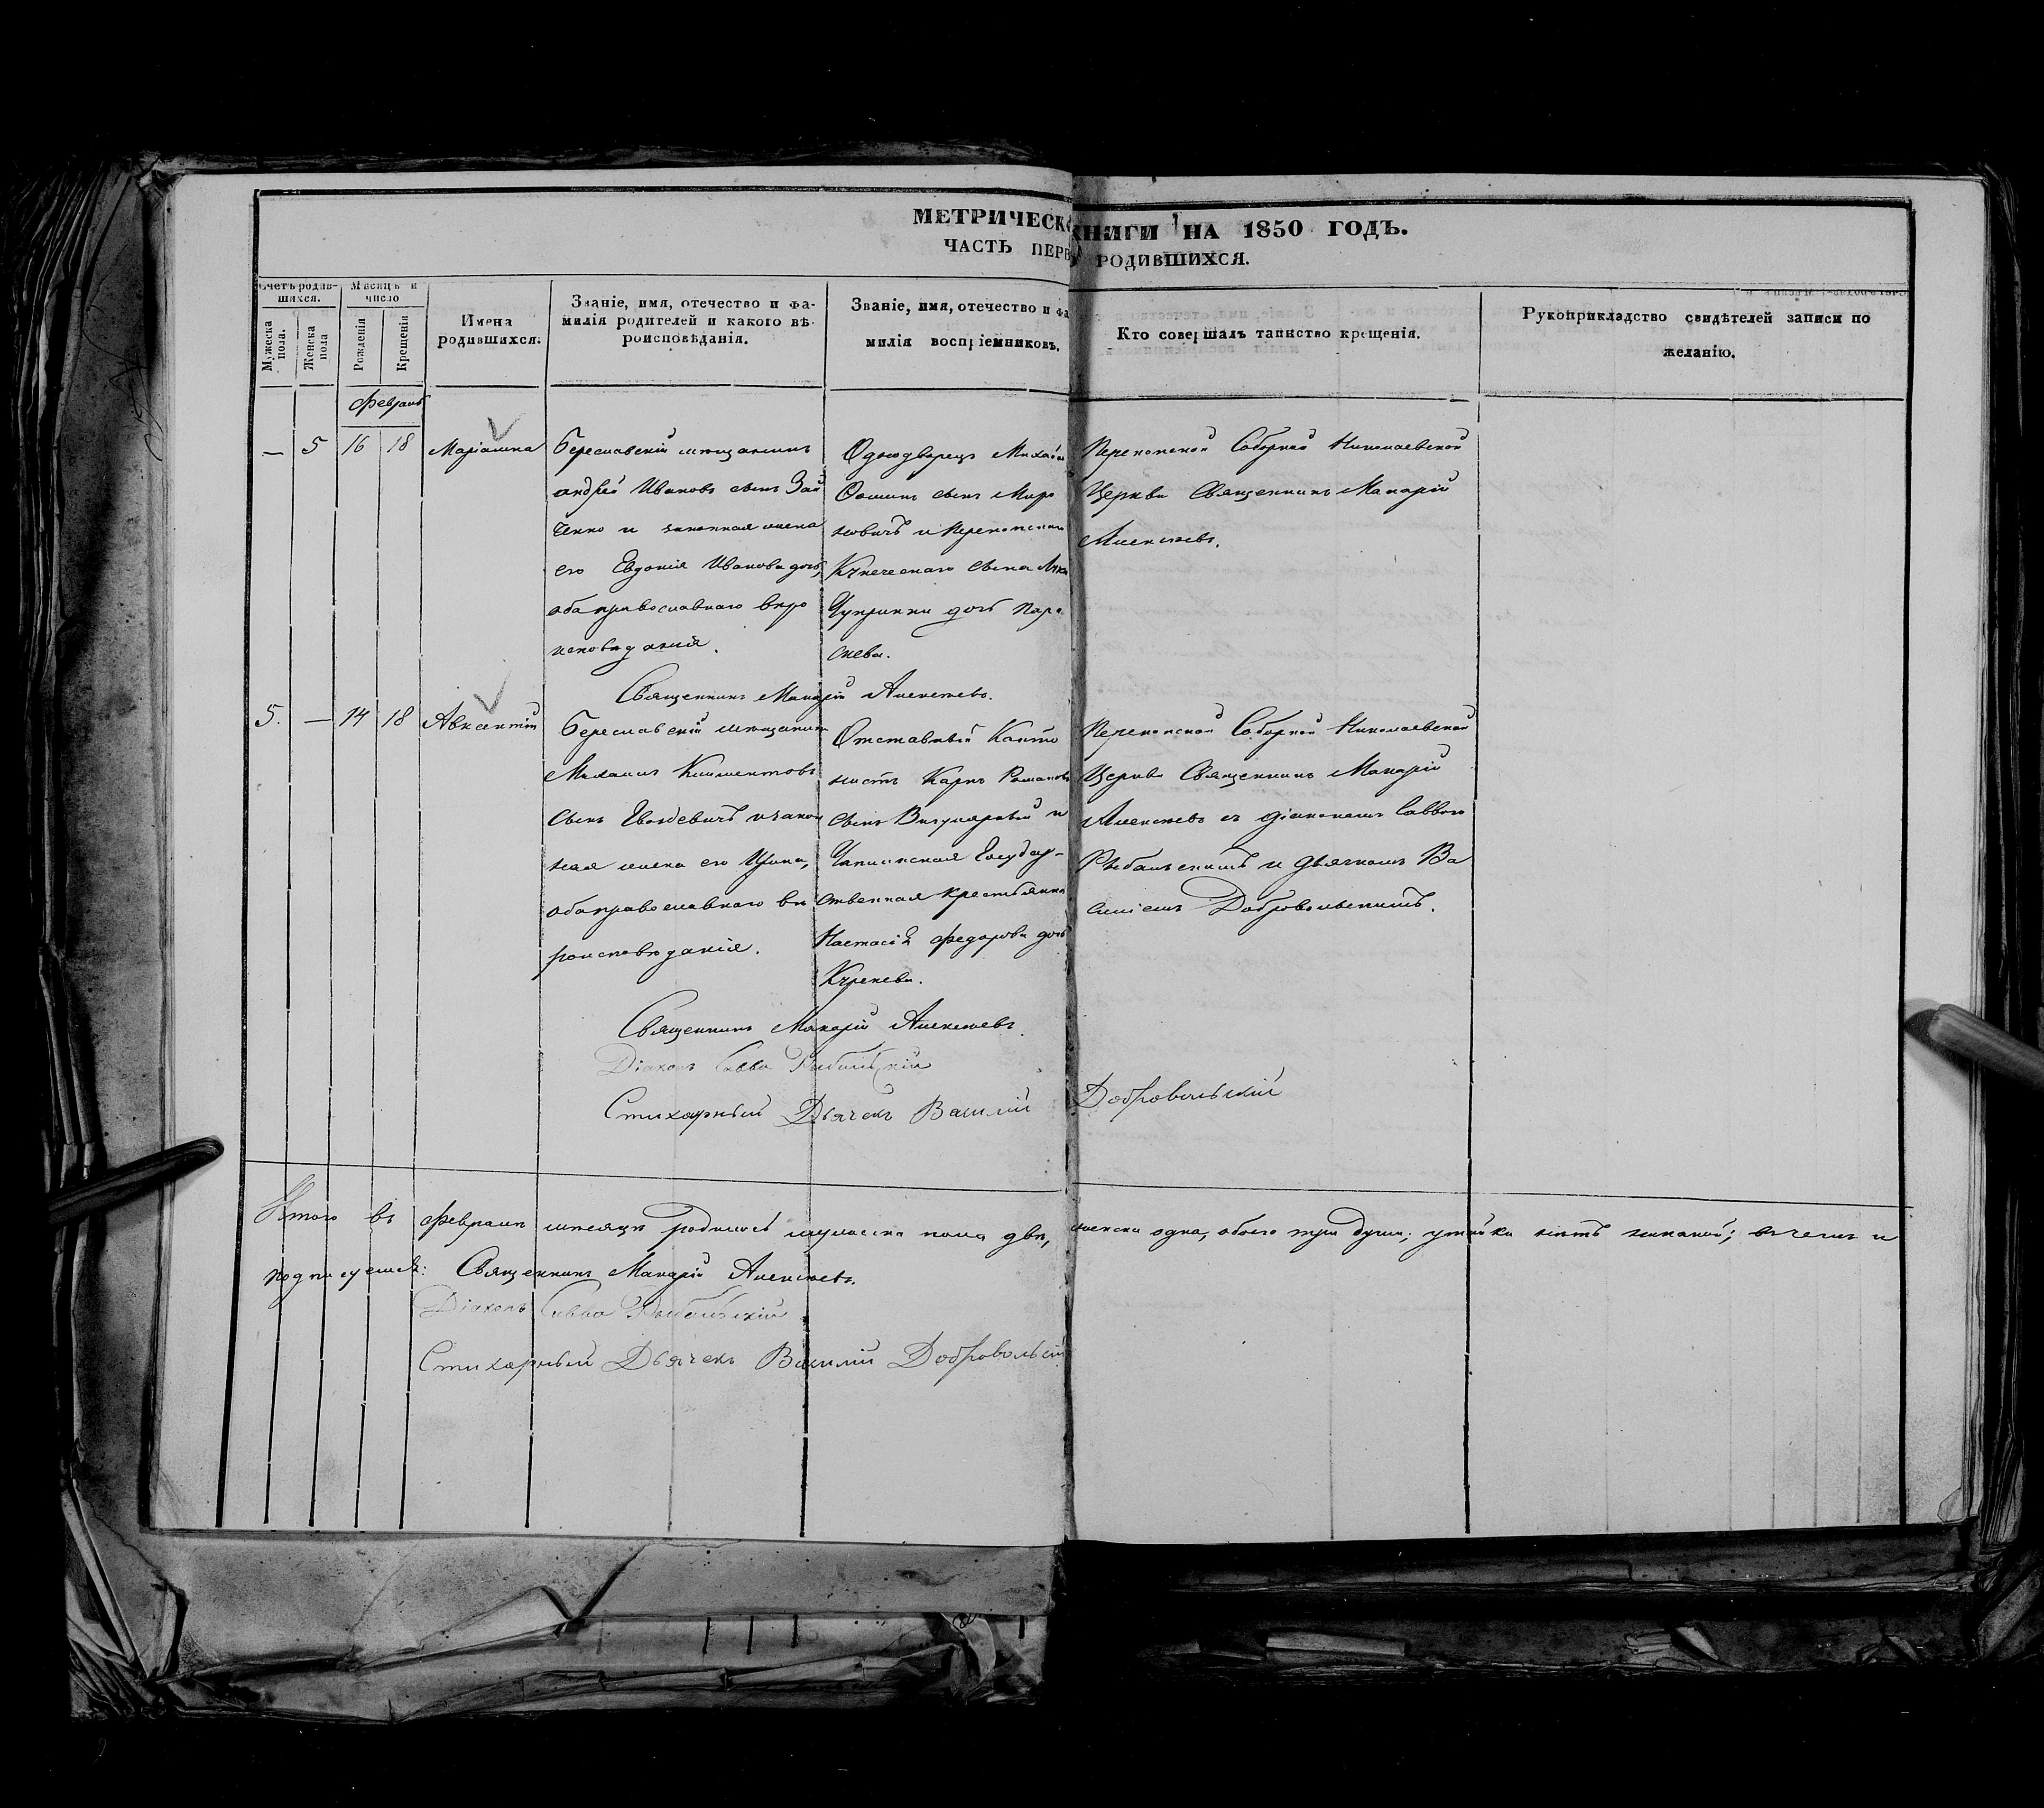 МЕТРИЧЕСК КНИГИ НА 1850 ГОДЪ.
ЧАСТЬ ПЕРВ РОДИВШИХСЯ.
Счетъ родив-
шихся.
Мужеска
пола.
Женска
пола
Мѣсяцъ и
число
Рожденія
Крещенія
Имена
родившихся.
Званіе, имя, отечество и фа-
милія родителей и какого вѣ-
роисповѣданія.
Званіе, имя, отечество и фа
милія воспріемниковъ.
Кто совершалъ таинство крещенія.
Рукоприкладство свидѣтелей записи по
желанію.
февраль
— 5 16 18 Маріамна
Береславскій мѣщанинъ
андрей Ивановъ сынъ Зай
ченко и законная жена
его Евдокія Иванова дочь,
оба православнаго вѣро
исповѣданія.
Однодворецъ Михаилъ
сынъ Миро
новичъ и Перекопскаго
Купеческаго сына
Чуприны дочь Пара
скева.
Перекопской Соборной Николаевской
Церкви Священникъ Макарій
Алексѣевъ.
Священникъ Макарій Алексѣевъ.
5. — 14 18 Авксентій
Береславскій мѣщанинъ
Михаилъ Климентовъ
сынъ Гвоздевичъ и закон
ная жена его Ирина,
оба православнаго вѣ
роисповѣданія.
Отставный Канто
нистъ Карпъ Романовъ
сынъ и
Чаплинская Государ-
ственная крестьянка
Настасія федорова дочь
Перекопской Соборной Николаевской
Церкви Священникъ Макарій
Алексѣевъ съ діакономъ Саввою
Рыбальскимъ и Дьячкомъ Ва
силіемъ Добровольскимъ.
Священникъ Макарій Алексѣевъ.
Діаконъ Савва Рыбальскій
Стихарный Дьячекъ Василій Добровольскій
Итого въ февралѣ мѣсяцѣ родилось мужеска пола два, женска одна, обоего три души; утайки нѣтъ никакой; въ чемъ и
подписуемся: Священникъ Макарій Алексѣевъ.
Діаконъ Савва Рыбальскій
Стихарный Дьячекъ Василій Добровольскій